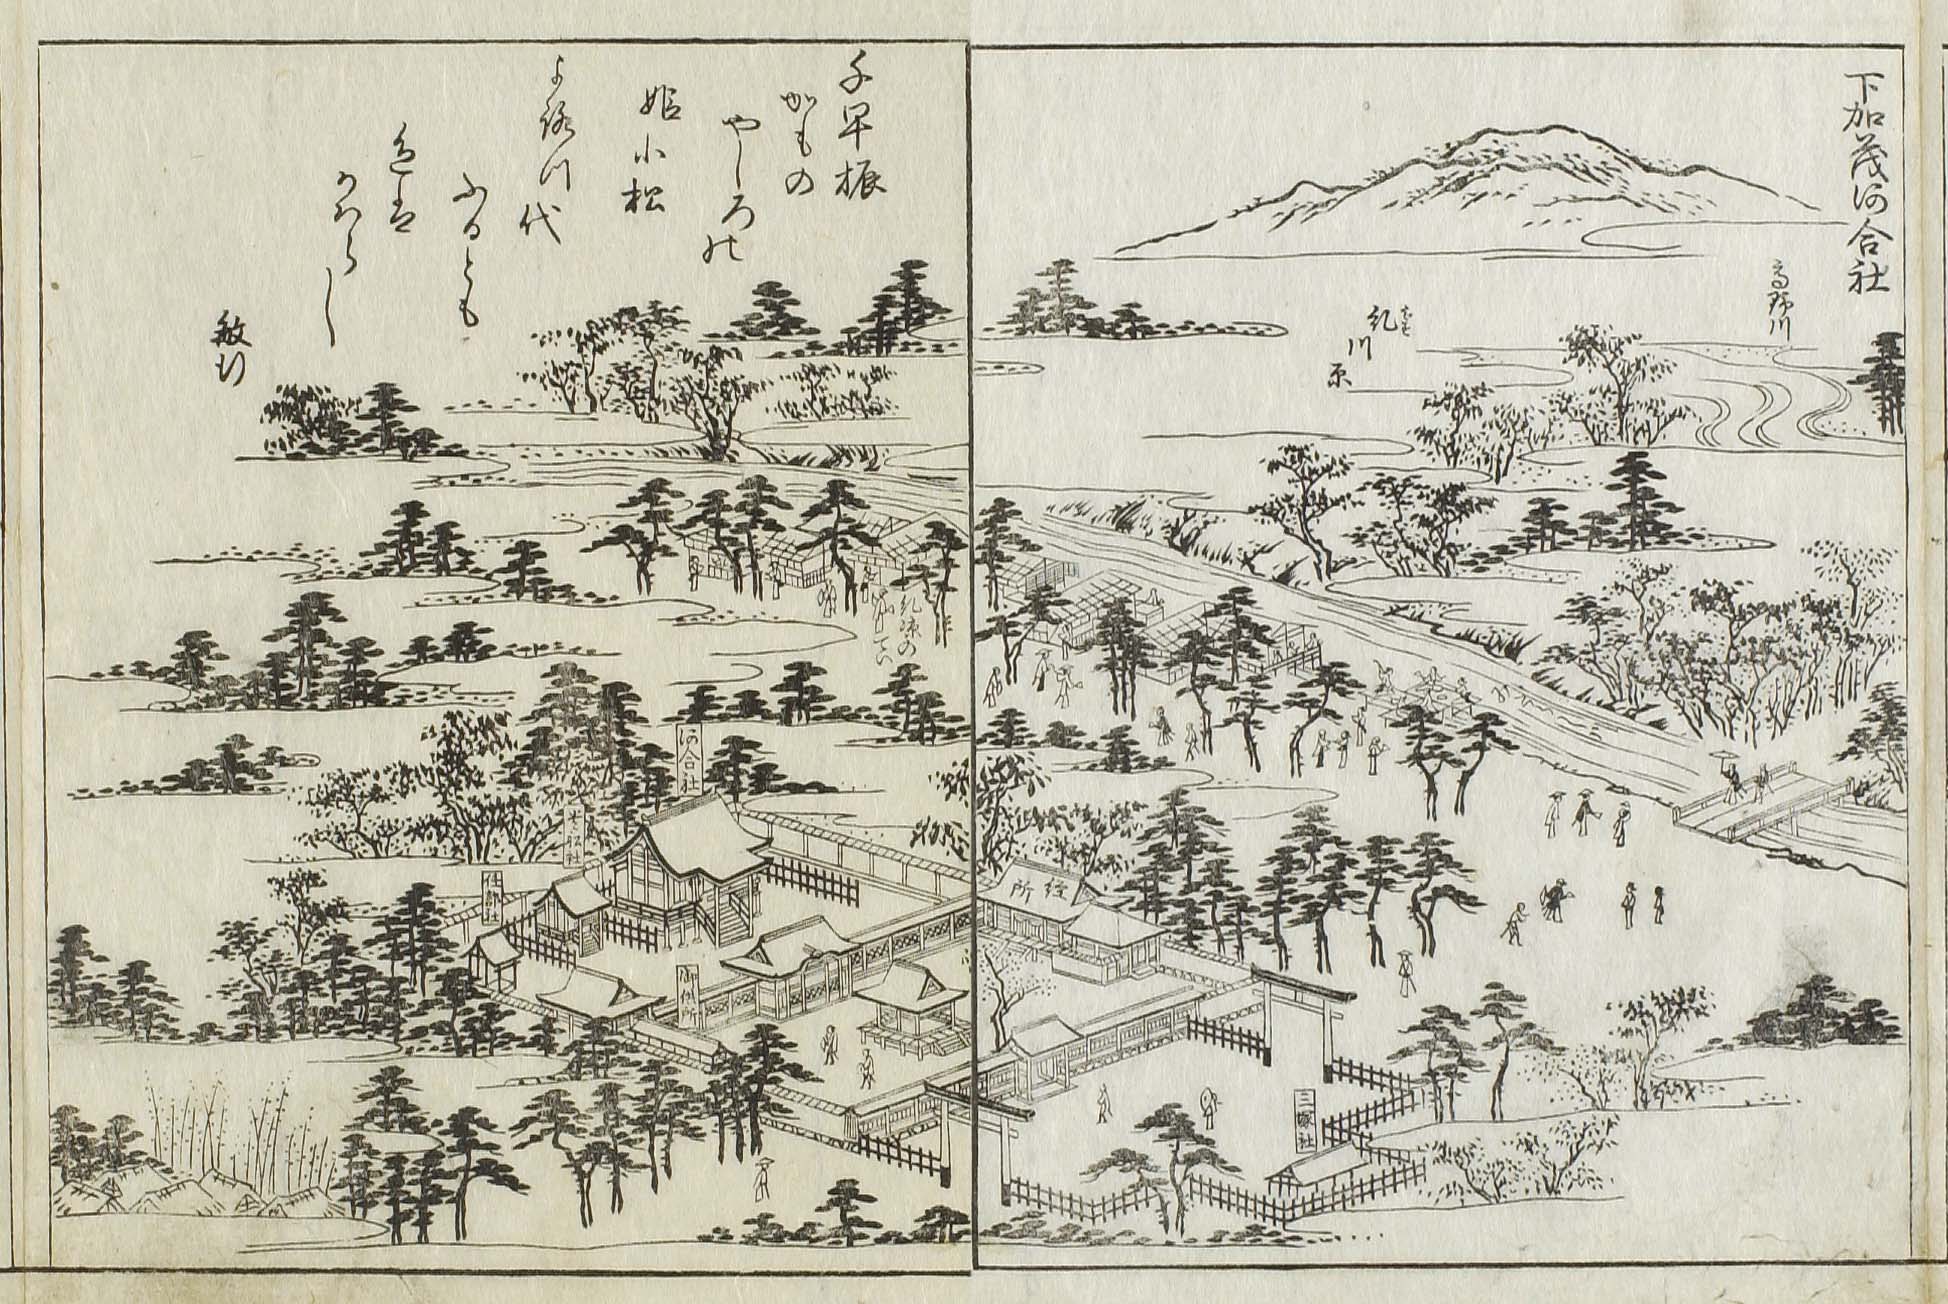 下加茂河合社
高野川
糺
川
原
千早振
かもの
やしろの
姫小松
よろづ代
ふるとも
色は
かはらし
敏行
糺森の
河合社
経所
任部社
御供所
三塚社